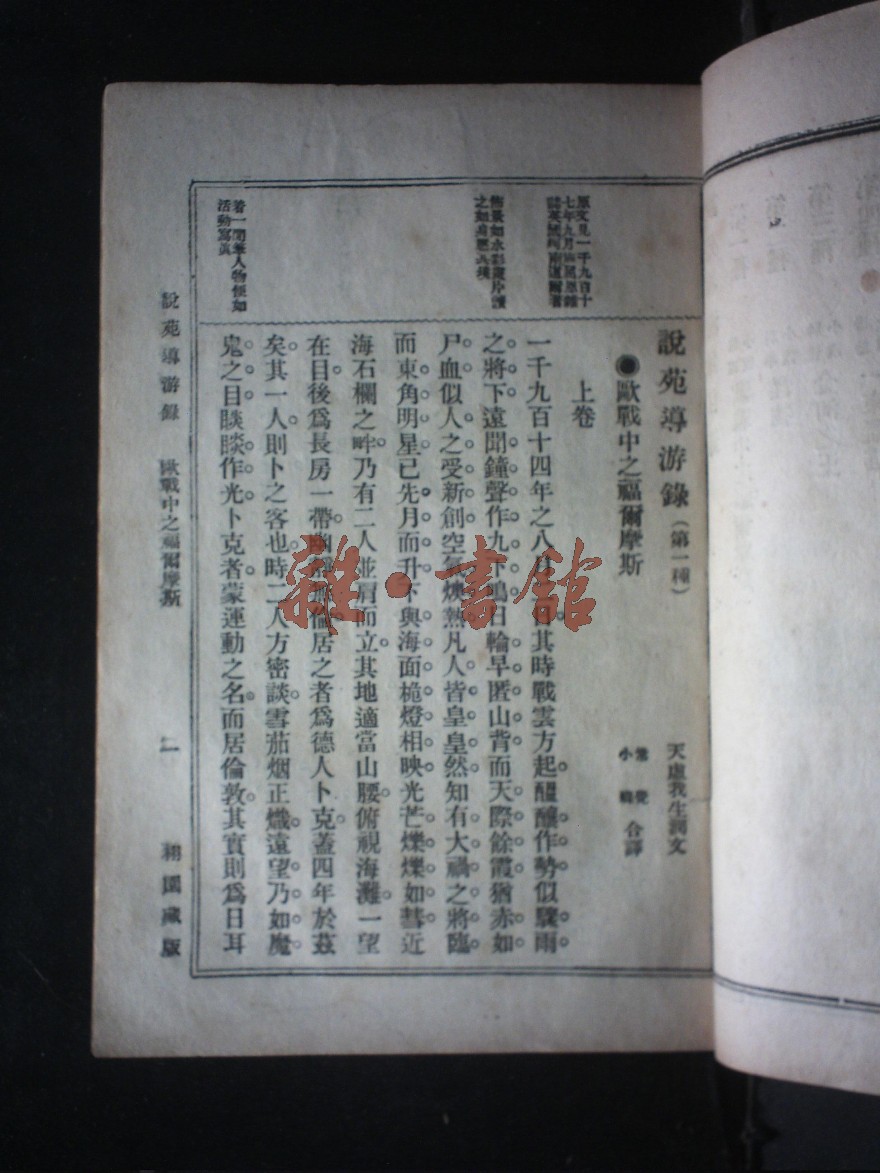 說苑導游錄(第一種)
天虛我生潤文
●歐戰中之福爾摩斯
常覺
小蝶
合譯
上卷
一千九百十四年之八月 日其時戰雲方起醞釀作勢似驟雨
之將下遠聞鐘聲作九下鳴日輪早匿山背而天際餘霞猶赤如
尸血似人之受新創空氣燠熱凡人皆皇皇然知有大禍之將臨
而東角明星已先月而升 與海面桅燈相映光芒爍爍如彗近
海石欄之畔乃有二人並肩而立其地適當山腰俯視海灘一望
在目後為長房一帶幽 居之者為德人卜克蓋四年於茲
矣其一人則卜之客也時二人方密談雪茄烟正熾遠望乃如魔
鬼之目睒睒作光卜克者蒙運動之名而居倫敦其實則為日耳
原文見一千九百十
七年九月
誌英 南道爾著
佈景如水彩畫片讀
之如
着一閒筆人物便如
活動寫真
說苑導游錄 歐戰中之福爾摩斯 一 栩園藏版
雜·書館